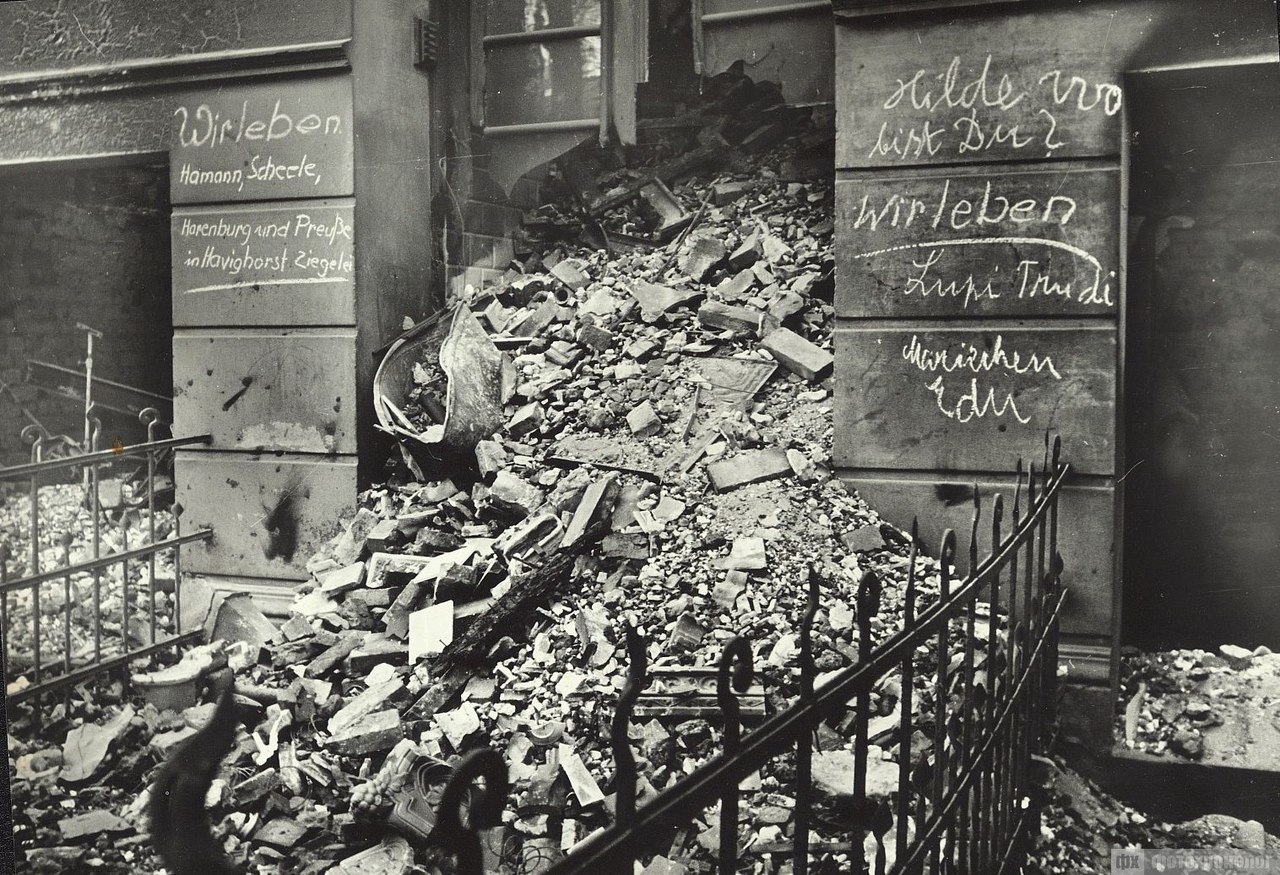 Wir leben.
Hamann, Scheele,
Harenburg und Preuße
in Havighorst Ziegelei
Hilde wo
bist Du?
Wir leben
Lupi Trudi
Mariechen
Edu